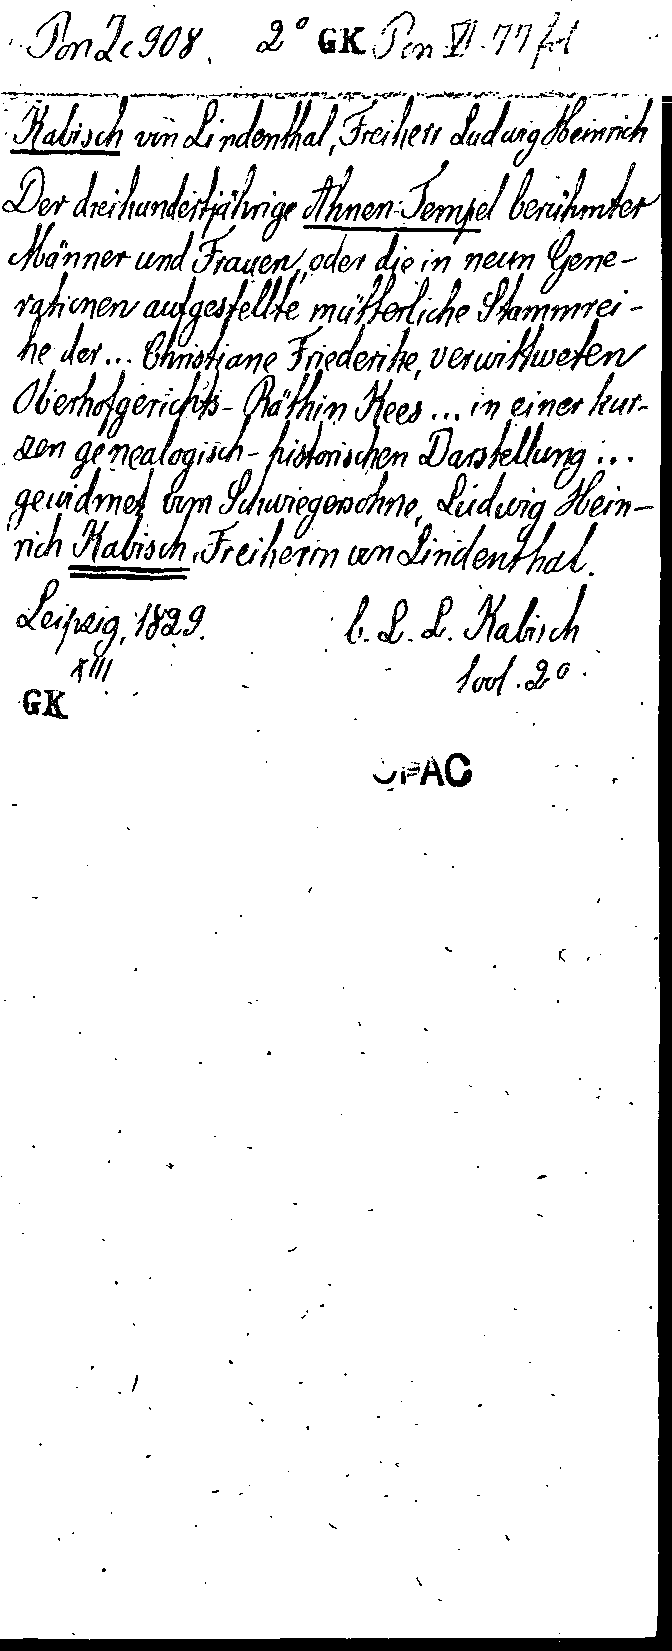 Pon Zc 908. 2° GK Pon VI. 77 fol
Kabisch von Lindenthal, Freiherr Ludwig Heinrich
Der dreihundertjährige Ahnen-Tempel berühmter
Männer und Frauen, oder die in neun Gene-
rationen aufgestellte mütterliche Stammrei-
he der... Christiane Friederike, verwittweten
Oberhofgerichts-Räthin Kees... in einer kur-
zen genealogisch-historischen Darstellung...
gewidmet vom Schwiegersohne, Ludwig Hein-
rich Kabisch, Freiherrn von Lindenthal.
Leipzig, 1829. b. L. L. Kabisch
XIII
GK
OPAC